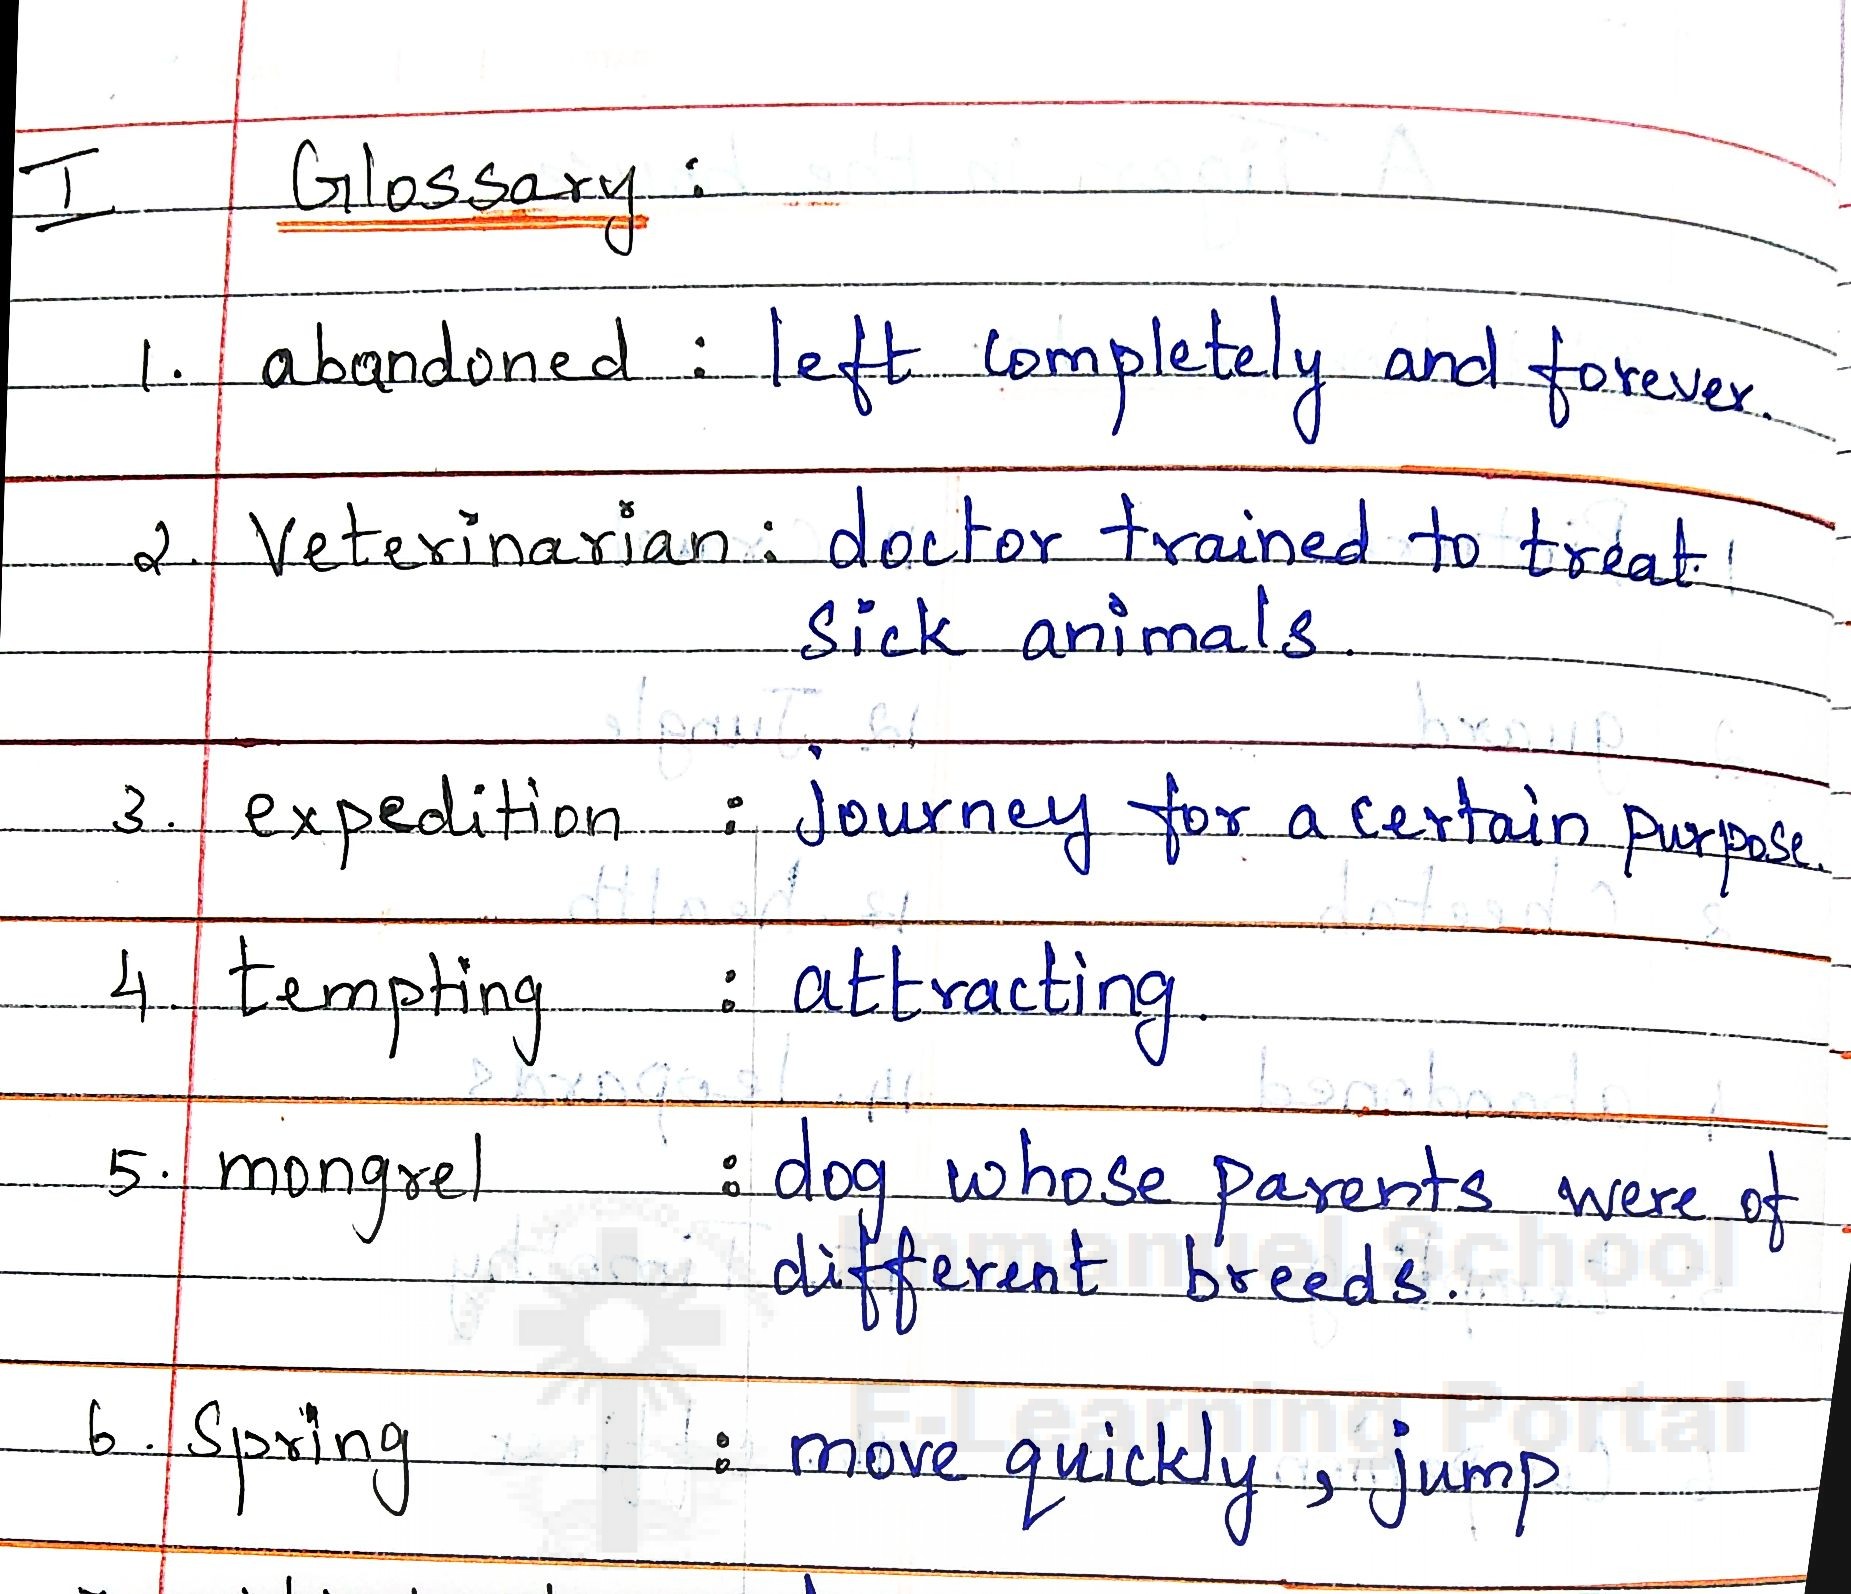 I Glossary :
1. abandoned : left completely and forever.
2. Veterinarian : doctor trained to treat
sick animals.
3. expedition : journey for a certain purpose.
4. tempting : attracting.
5. mongrel : dog whose parents were of
different breeds.
6. Spring : move quickly, jump
Immanuel School
E-Learning Portal